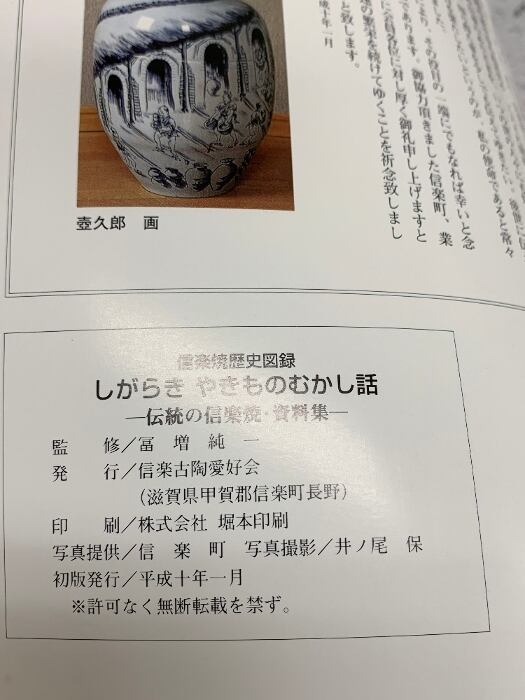 した。
の使命であると常々
その役目の一端にでもなれば幸いと念
であります。御協力頂きました信楽町、業
に各位に対し厚く御礼申し上げますと
の繁栄を続けてゆくことを祈念致しまし
と致します。
成十年一月
壺久郎 画
信楽焼歴史図録
しがらき やきものむかし話
―伝統の信楽焼・資料集―
監 修/冨 増 純 一
発 行/信楽古陶愛好会
(滋賀県甲賀郡信楽町長野)
印 刷/株式会社 堀本印刷
写真提供/信 楽 町 写真撮影/井ノ尾 保
初版発行/平成十年一月
※許可なく無断転載を禁ず。